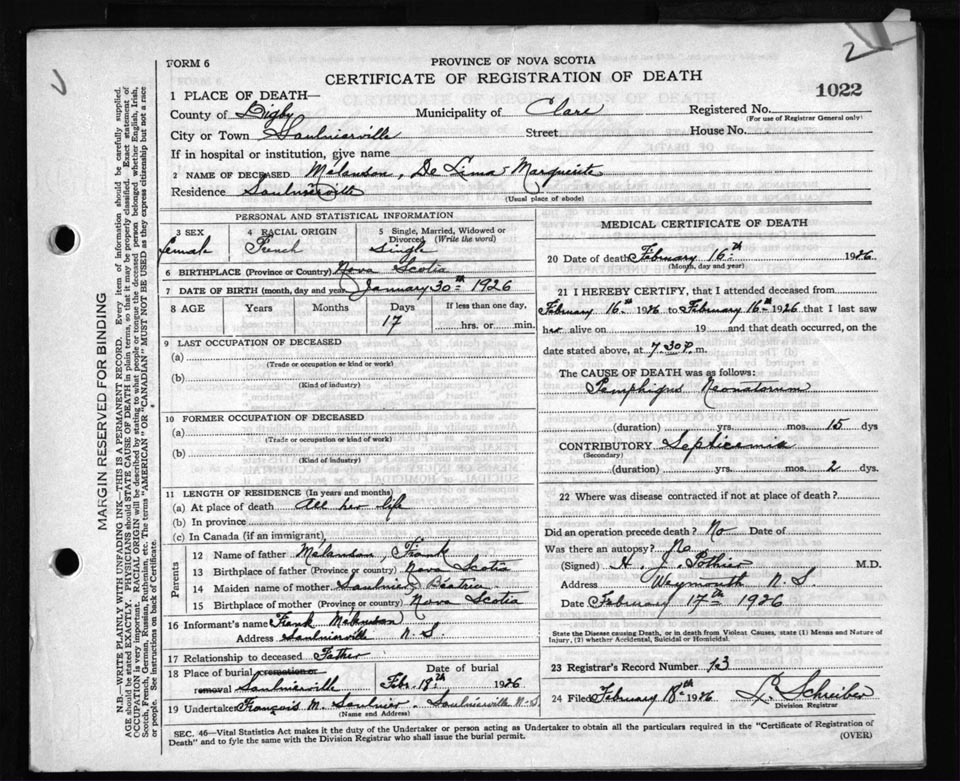 FORM 6
PROVINCE OF NOVA SCOTIA
CERTIFICATE OF REGISTRATION OF DEATH
2
1022
1 PLACE OF DEATH—
County of Digby Municipality of Clare Registered No.
(For use of Registrar General only)
City or Town Saulnierville Street House No.
If in hospital or institution, give name
2 NAME OF DECEASED Melanson, De Lima Marguerite
Residence Saulnierville
(Usual place of abode)
PERSONAL AND STATISTICAL INFORMATION
3 SEX 4 RACIAL ORIGIN 5 Single, Married, Widowed or Divorced (Write the word)
Female French Single
6 BIRTHPLACE (Province or Country) Nova Scotia
7 DATE OF BIRTH (month, day and year) January 30th 1926
8 AGE Years Months Days If less than one day,
17 hrs. or min.
9 LAST OCCUPATION OF DECEASED
(a)
(Trade or occupation or kind or work)
(b)
(Kind of industry)
10 FORMER OCCUPATION OF DECEASED
(a)
(Trade or occupation or kind or work)
(b)
(Kind of industry)
11 LENGTH OF RESIDENCE (In years and months)
(a) At place of death All her life
(b) In province
(c) In Canada (if an immigrant)
Parents
12 Name of father Melanson, Frank
13 Birthplace of father (Province or country) Nova Scotia
14 Maiden name of mother Saulnier, Beatrice
15 Birthplace of mother (Province or country) Nova Scotia
16 Informant's name Frank Melanson
Address Saulnierville N. S.
17 Relationship to deceased Father
18 Place of burial cremation or Date of burial
removal Saulnierville Febr. 18th 1926
19 Undertaker François M. Saulnier, Saulnierville N. S.
(Name and Address)
MEDICAL CERTIFICATE OF DEATH
20 Date of death February 16th 1926
(Month, day and year)
21 I HEREBY CERTIFY, that I attended deceased from
February 16th 1926 to February 16th 1926 that I last saw
her alive on 19 and that death occurred, on the
date stated above, at 7.30 P. m.
The CAUSE OF DEATH was as follows:
Pemphigus Neonatorum
(duration) yrs. mos. 15 dys
CONTRIBUTORY Septicemia
(Secondary)
(duration) yrs. mos. 2 dys.
22 Where was disease contracted if not at place of death?
Did an operation precede death? No Date of
Was there an autopsy? No
(Signed) H. J. Pothier M.D.
Address Weymouth N. S.
Date February 17th 1926
State the Disease causing Death, or in death from Violent Causes, state (1) Means and Nature of
Injury, (2) whether Accidental, Suicidal or Homicidal.
23 Registrar's Record Number 13
24 Filed February 18th 1926 L. Schreiber
Division Registrar
SEC. 46—Vital Statistics Act makes it the duty of the Undertaker or person acting as Undertaker to obtain all the particulars required in the "Certificate of Registration of
Death" and to fyle the same with the Division Registrar who shall issue the burial permit.
(OVER)
MARGIN RESERVED FOR BINDING
N.B.—WRITE PLAINLY WITH UNFADING INK—THIS IS A PERMANENT RECORD. Every item of information should be carefully supplied.
AGE should be stated EXACTLY. PHYSICIANS should STATE CAUSE OF DEATH in plain terms, so that it may be properly classified. Exact statement of
OCCUPATION is very important. RACIAL ORIGIN will be described by stating to what people or tongue the deceased person belonged whether English, Irish,
Scotch, French, German, Russian, Ruthenian, etc. The terms "AMERICAN" OR "CANADIAN" MUST NOT BE USED as they express citizenship but not a race
or people. See instructions on back of Certificate.